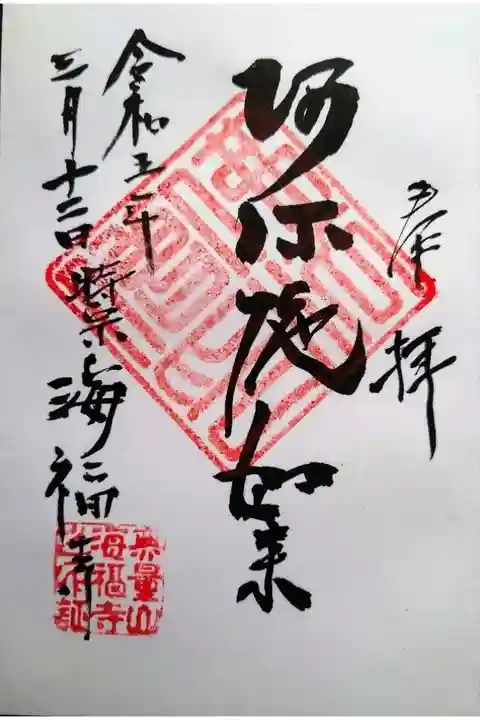 奉拝
阿弥陀如来
令和五年
三月十二日 時宗 海福寺
無量山
海福寺